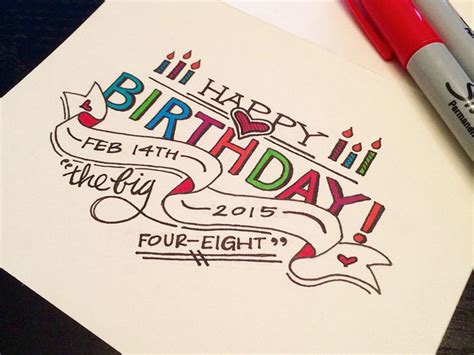 HAPPY
BIRTHDAY!
FEB 14TH
2015
"the big
FOUR-EIGHT"
Permanent